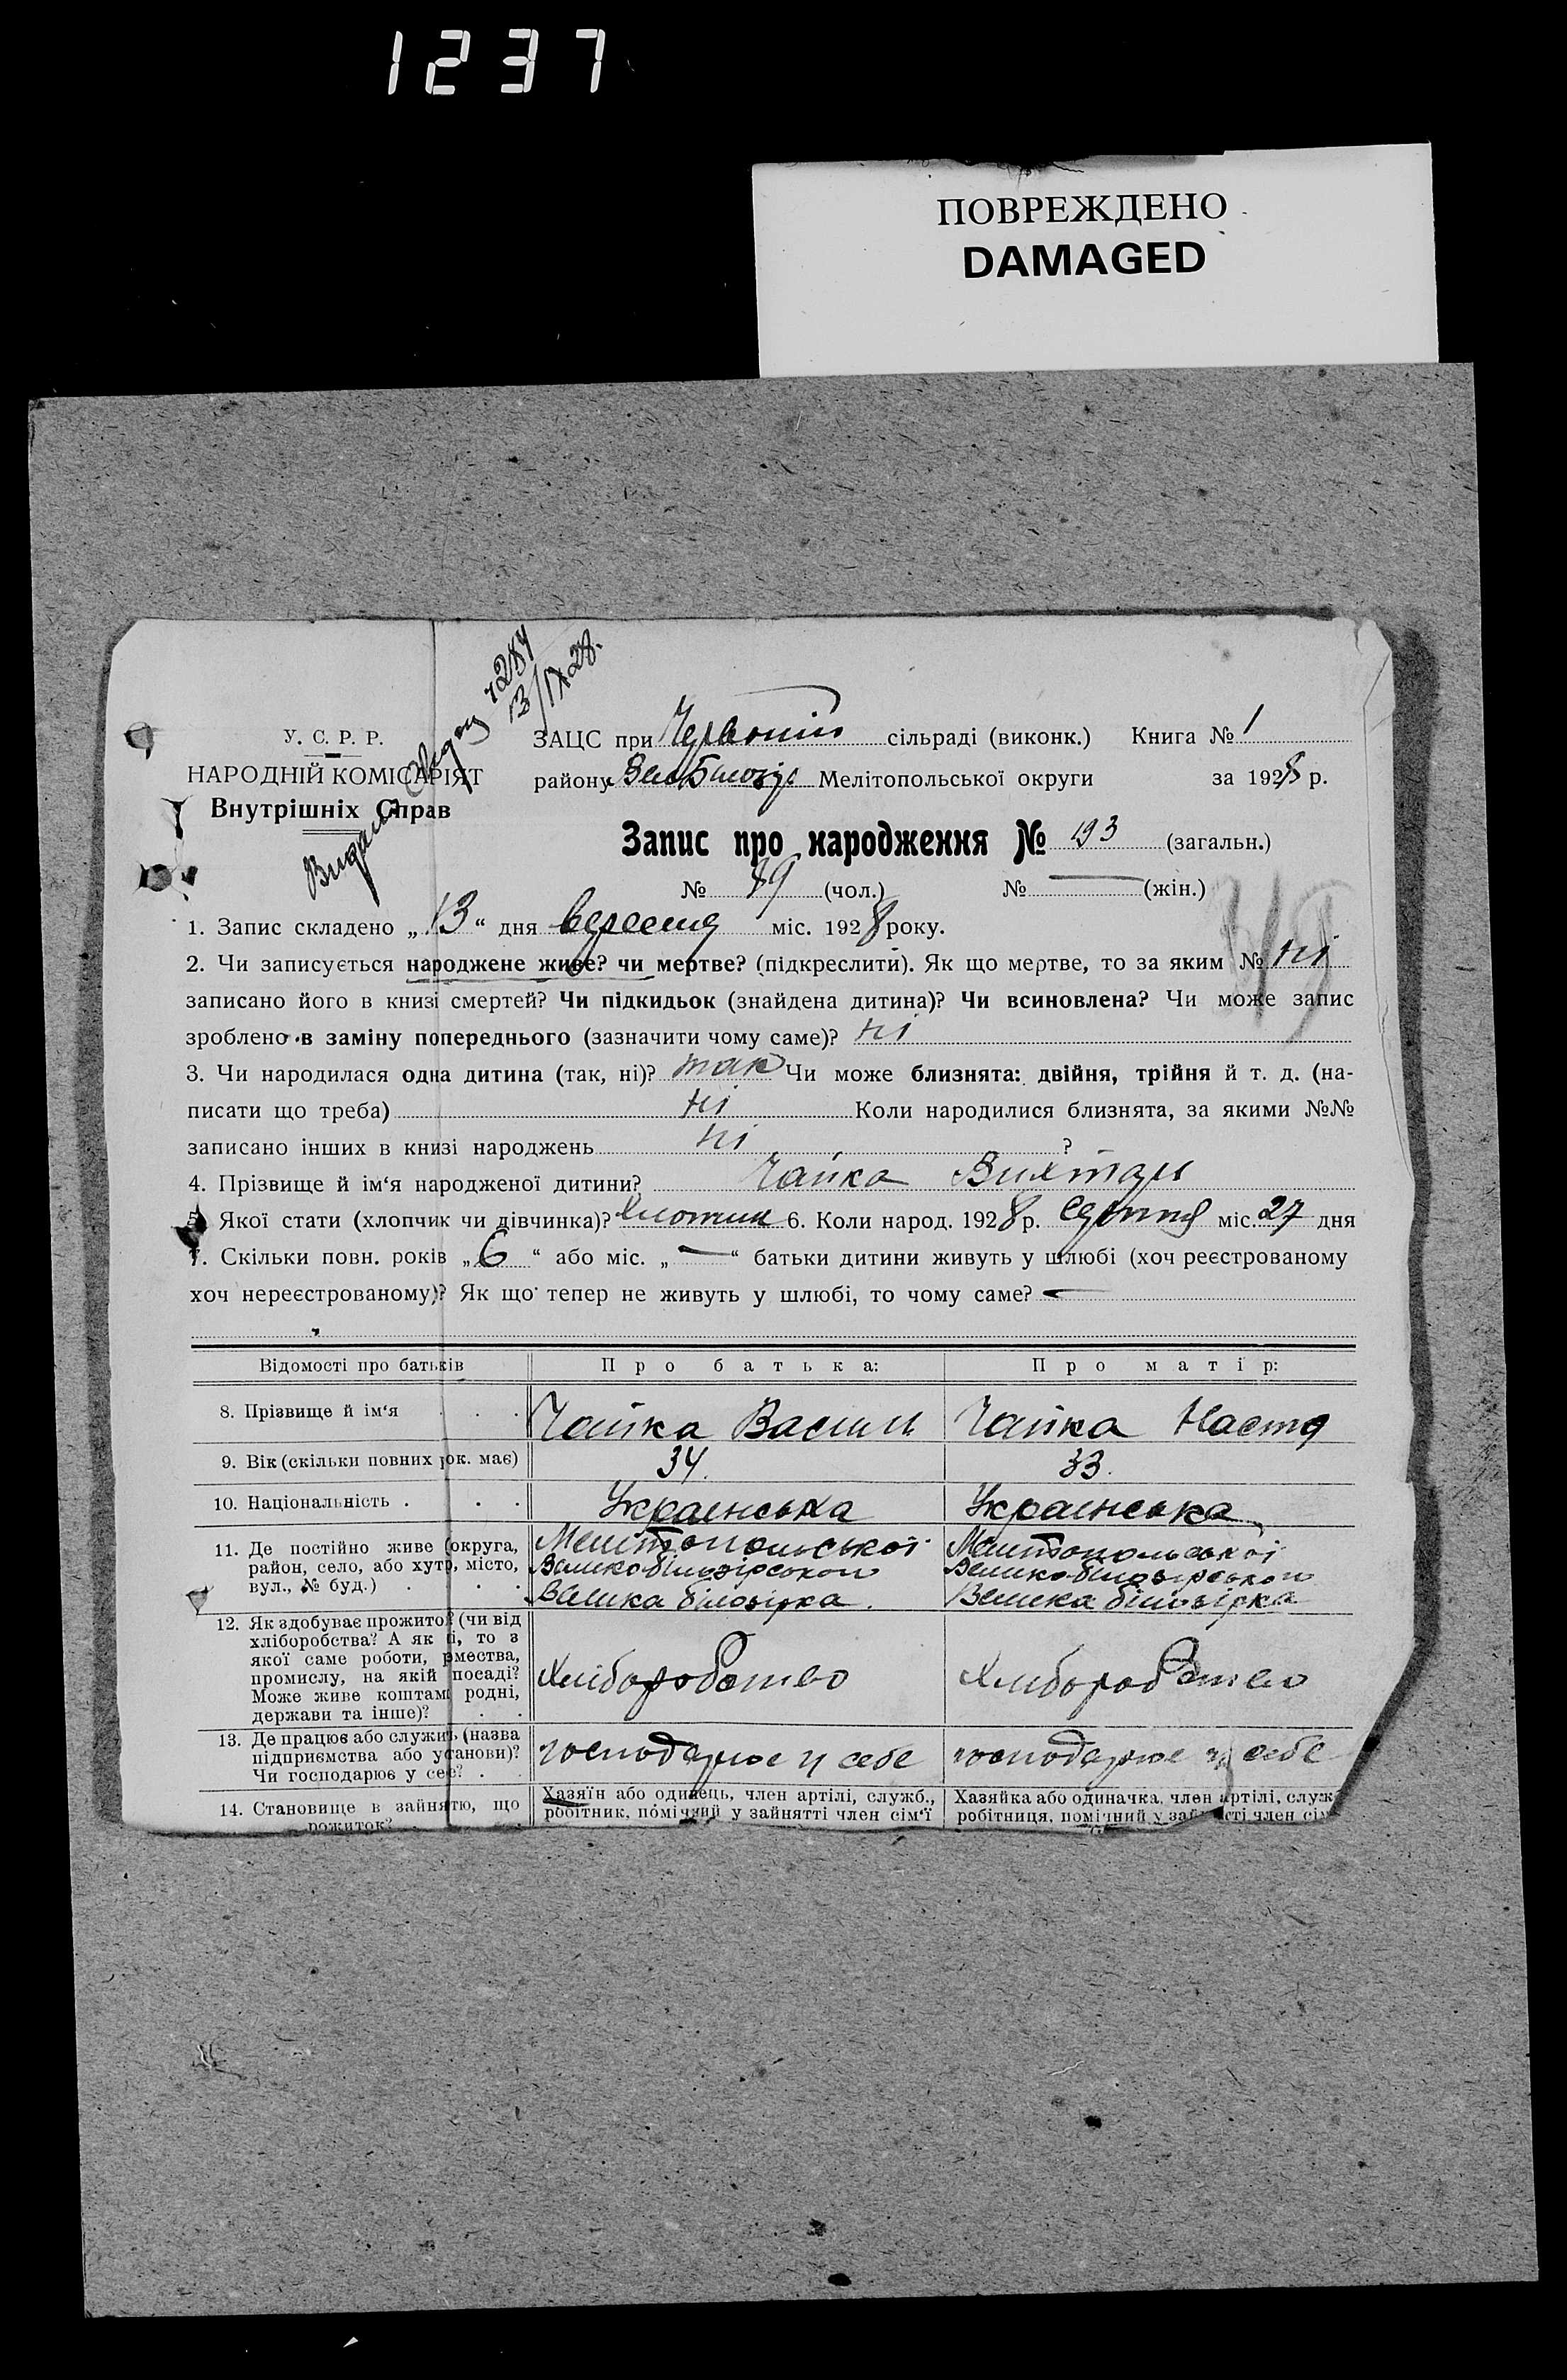 1237
ПОВРЕЖДЕНО
DAMAGED
Видан
ч 284
13/IX 28.
У. С. Р. Р.
НАРОДНІЙ КОМІСАРІЯТ
Внутрішніх Справ
ЗАЦС при Червоній сільраді (виконк.) Книга № 1
району Вел Білозір Мелітопольської округи за 1928 р.
Запис про народження № 193 (загальн.)
№ 89 (чол.) № — (жін.)
1. Запис складено „13“ дня вересня міс. 1928 року.
2. Чи записується народжене живе? чи мертве? (підкреслити). Як що мертве, то за яким № ні
записано його в книзі смертей? Чи підкидьок (знайдена дитина)? Чи всиновлена? Чи може запис
зроблено в заміну попереднього (зазначити чому саме)? ні
3. Чи народилася одна дитина (так, ні)? так Чи може близнята: двійня, трійня й т. д. (на-
писати що треба) ні Коли народилися близнята, за якими №№
записано інших в книзі народжень ні ?
4. Прізвище й ім‘я народженої дитини? Чайка Виктор
5. Якої стати (хлопчик чи дівчинка)? хлопчик 6. Коли народ. 1928 р. серпня міс. 27 дня
7. Скільки повн. років „6“ або міс. „—“ батьки дитини живуть у шлюбі (хоч реєстрованому
хоч нереєстрованому)? Як що тепер не живуть у шлюбі, то чому саме? —
Відомості про батьків Про батька: Про матір:
8. Прізвище й ім‘я . . . Чайка Василь Чайка Настя
9. Вік (скільки повних рок. має) 34. 33.
10. Національність . . . Українська Українська
11. Де постійно живе (округа, Мелітопольської Мелітопольської
район, село, або хутр, місто, Великобілозірской Великобілозірской
вул., № буд.) . . . Велика білозірка. Велика білозірка
12. Як здобуває прожиток (чи від
хліборобства? А як ні, то з
якої саме роботи, рмества,
промислу, на якій посаді? Хліборобство Хліборобство
Може живе коштам родні,
держави та інше)? . .
13. Де працює або служить (назва
підприємства або установи)? господарює у себе господарює у себе
Чи господарює у себе? . .
14. Становище в зайнятю, що Хазяїн або одинець, член артілі, служб., Хазяйка або одиначка, член артілі, служ
рожиток? робітник, помічний у зайнятті член сім‘ї робітниця, помічний у зайнятті член сім